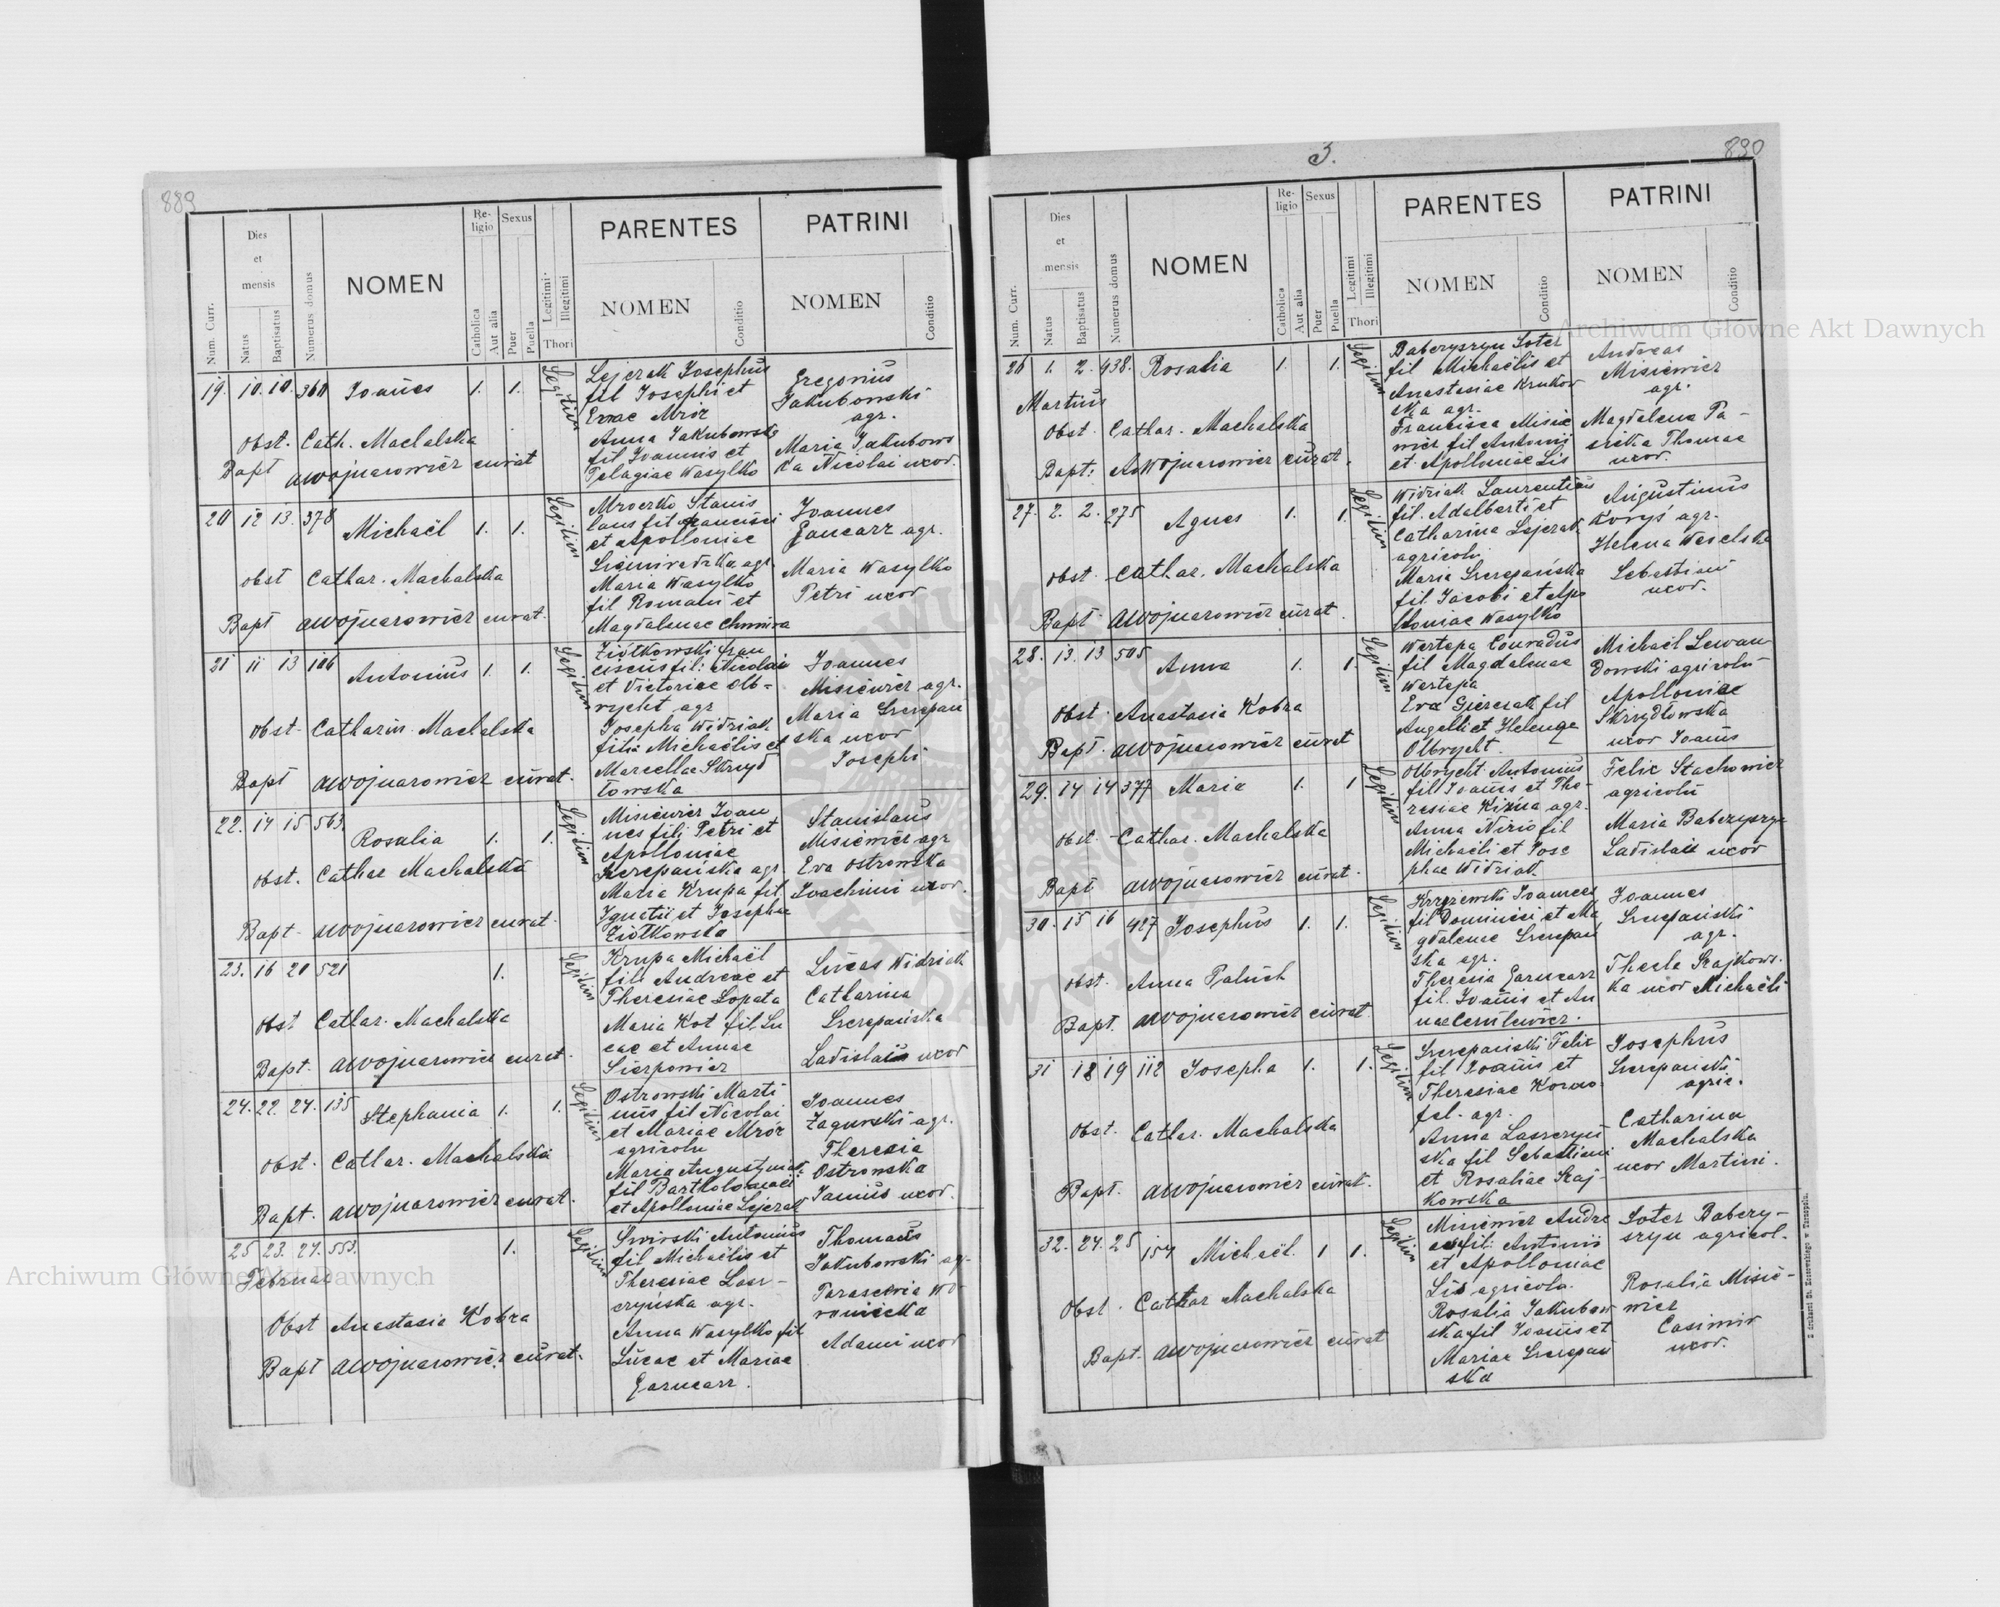 889
Num. Curr.
Dies et mensis
Natus
Baptisatus
Numerus domus
NOMEN
Religio
Catholica
Aut alia
Sexus
Puer
Puella
Legitimi
Illegitimi
Thori
PARENTES
NOMEN
Conditio
PATRINI
NOMEN
Conditio
19. 10. 10. 360 Joañes 1. 1. Legitim
Lejerak Josephus
fil Josephi et
Evae Mróz
Anna Jakubowska
fil Joannis et
Pelagiae Wasylko
Gregorius
Jakubowski
agr.
Maria Jakubows
ka Nicolai uxor.
Obst. Cath. Machalska
Bapt AWojnarowicz curat
20 12 13. 378 Michaël 1. 1. Legitim
Mroczko Stanis
laus fil Francisci
et Apolloniae
agr.
Maria Wasylko
fil Romani et
Magdalenae Chmura
Joannes
Garncarz agr.
Maria Wasylko
Petri uxor
obst Cathar. Machalska
Bapt AWojnarowicz curat.
21 11 13 106 Antonius 1. 1. Legitim
Ziółkowski Fran
ciscus fil: Nicolai
et Victoriae Olb=
rycht agr
Josepha Widziak
filia Michaëlis et
Marcellae Skrzyd
łowska
Joannes
Misiewicz agr.
Maria Szczepań
ska uxor
Josephi
obst. Catharin Machalska
Bapt AWojnarowicz curat.
22. 14 15 563. Rosalia 1. 1. Legitim
Misiewicz Joan
nes fil: Petri et
Apolloniae
Szczepańska agr.
Maria Krupa fil
Ignatii et Josephae
Ziółkowska
Stanislaus
Misiewicz agr
Eva Ostrowska
Joachimi uxor.
obst. Cathar Machalska
Bapt. AWojnarowicz curat.
23. 16 20 521 1. Legitim
Krupa Michaël
fil: Andreae et
Theresiae Łopata
Maria Kot fil Lu
cae et Annae
Sierpowicz
Lucas Widziak
Catharina
Szczepańska
Ladislaus uxor
obst Cathar. Machalska
Bapt. AWojnarowicz curat.
24. 22. 24. 135 Stephania 1. 1. Legitim
Ostrowski Marti
nus fil Nicolai
et Mariae Mróz
agricola
Maria Augustyniak
fil Bartholomaei
et Apolloniae Lejerak
Joannes
Zagurski agr.
Theresia
Ostrowska
uxor.
obst. Cathar. Machalska
Bapt. AWojnarowicz curat.
25 23. 27. 553. 1. Legitim
Februar
Świrski Antonius
fil Michaëlis et
Theresiae Lasz-
czyńska agr.
Anna Wasylko fil
Lucae et Mariae
Garncarz.
Thomas
Jakubowski agr.
Parascevia
Adami uxor
Obst Anastasia Kobza
Bapt AWojnarowicz curat.
3.
890
Num. Curr.
Dies et mensis
Natus
Baptisatus
Numerus domus
NOMEN
Religio
Catholica
Aut alia
Sexus
Puer
Puella
Legitimi
Illegitimi
Thori
PARENTES
NOMEN
Conditio
PATRINI
NOMEN
Conditio
26 1. 2. 438. Rosalia 1. 1. Legitim
Martius
Baberyszyn Soter
fil Michaëlis et
Anastasiae Krukow
ska agr.
Francisca Misie
wicz fil Antonii
et Apolloniae Lis
Andreas
Misiewicz
agr.
Magdalena Pa-
szcka Thomae
uxor.
Obst Cathar. Machalska
Bapt: AWojnarowicz curat.
27. 2. 2. 275 Agnes 1. 1. Legitim
Widziak Laurentius
fil. Adalberti et
Catharina Lejerak
agricola
Maria Szczepańska
fil Jacobi et Apo
lloniae Wasylko
Augustinus
Koryś agr.
Helena Wesolska
Sebastiani
uxor.
obst. Cathar. Machalska
Bapt AWojnarowicz curat.
28. 13. 13 505 Anna 1. 1. Legitim
Wertepa Conradus
fil Magdalenae
Wertepa
Eva Gierczak fil
Angelli et Helenae
Olbrycht.
Michaël Lewan
dowski agricola
Apolloniae
Skrzydłowska
uxor Joañis
obst. Anastasia Kobza
Bapt. AWojnarowicz curat
29. 14 14 377 Maria 1. 1 Legitim
Olbrycht Antonius
fil Joañis et The-
resiae agr.
Anna fil
Michaëli et Jose
phae Widziak.
Felix Stachowicz
agricola
Maria Baberyszyn
Ladislai uxor
obst. Cathar. Machalska
Bapt AWojnarowicz curat.
30. 15 16 427 Josephus 1. 1. Legitim
Krzyżewski Joannes
fil Dominici et Ma
gdalenae Szczepań
ska agr.
Theresia Garncarz
fil. Joañis et An
nae
Joannes
Szczepański
agr.
Thecla Szajkows-
ka uxor Michaëli
obst. Anna Paluch
Bapt. AWojnarowicz curat
31 18 19 112 Josepha 1. 1. Legitim
Szczepański Felix
fil Joañis et
Theresiae
fel. agr.
Anna Laszczyń
ska fil Sebastiani
et Rosaliae Szaj-
kowska
Josephus
Szczepański
agric.
Catharina
Machalska
uxor Martini.
Obst. Cathar. Machalska
Bapt. AWojnarowicz curat.
32. 24. 25 157 Michaël. 1 1. Legitim
Misiewicz Andre
as fil: Antonii
et Apolloniae
Lis agricola.
Rosalia Jakubow
ska fil Joañis et
Mariae Szczepań
ska
Soter Babery-
szyn agricol.
Rosalia Misie-
wicz
Casimir
uxor.
Obst. Cathar Machalska
Bapt. AWojnarowicz curat
Archiwum Główne Akt Dawnych
Archiwum Główne Akt Dawnych